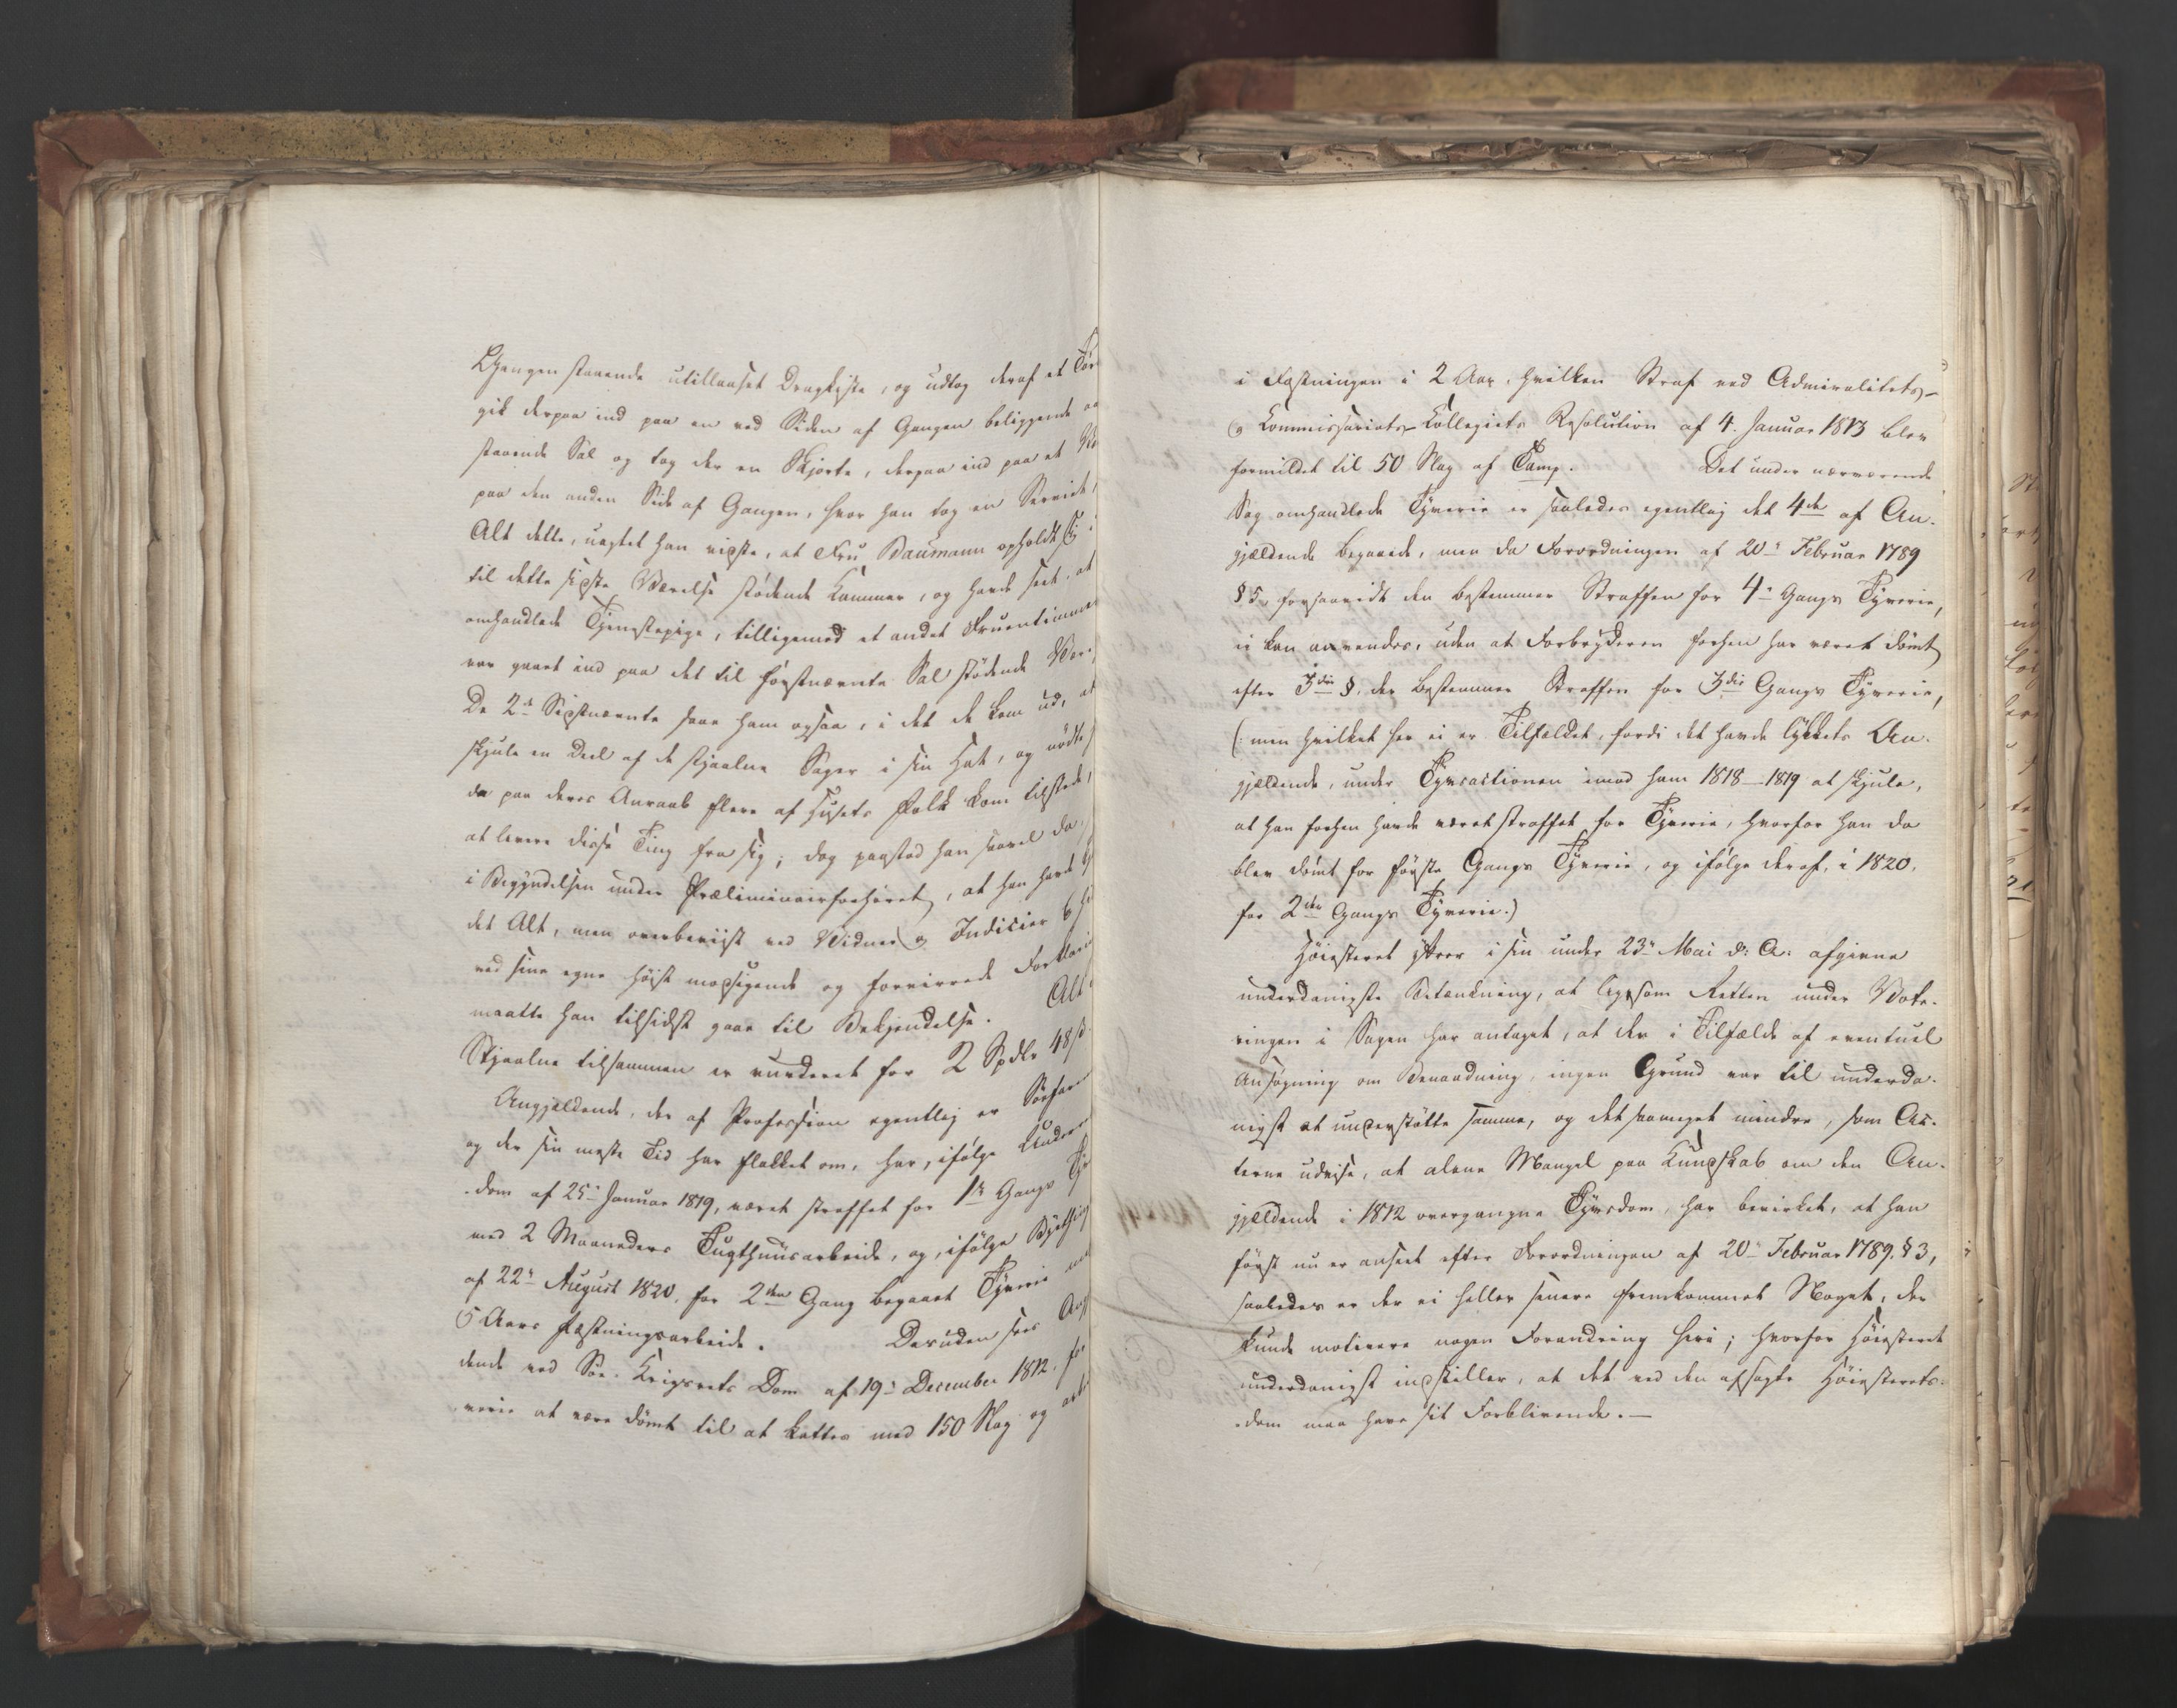 Gangen staaende utillaaset Dragkiste, og udtog deraf et Tør
gik derpaa ind paa en ved Siden af Gangen beliggende aa
staaende Sal og tog der en Skjorte, derpaa ind paa et Væ
paa den anden Side af Gangen, hvor han tog en Serviet,
Alt dette, uagtet han vidste, at Fru Baumann opholdt sig i
til dette sidste Værelse stødende Kammer, og havde seet, at
omhandlede Tjenestepige, tilligemed et andet Fruentimmer
var gaaet ind paa det til førstnævnte Sal stødende Vær.
De 2de Sidstnævnte saae ham ogsaa, i det de kom ud, at
skjule en Deel af de stjaalne Sager i sin Hat, og nødte
da paa deres Anraab flere af Husets Folk kom tilstede,
at levere disse Ting fra sig; dog paastod han saavel da,
i Begyndelsen under Præliminairforhøret, at han havde
det Alt, men overbeviist ved Vidner og Indicier
ved sine egne høist modsigende og forvirrede Forklari
maatte han tilsidst gaae til Bekjendelse. Alt
Stjaalne tilsammen er vurderet for 2 Spdlr 48 ß.
Angjældende, der af Profession egentlig er Søefare
og der sin meste Tid har flakket om, har, ifølge Underre
dom af 25de Januar 1819, været straffet for 1ste Gangs Ty
med 2 Maaneders Tugthuusarbeide, og, ifølge Bything
af 22de August 1820, for 2den Gang begaaet Tyverie med
5 Aars Fæstningsarbeide. Desuden sees Ang
dende ved Søe-Krigsrets Dom af 19de December 1812, for
verie at være dømt til at kattes med 150 Slag og arb
i Fæstningen i 2 Aar, hvilken Straf ved Admiralitets-
og Kommissariats-Kollegiets Resolution af 4. Januar 1813 blev
formildet til 50 Slag af Tamp. Det under nærværende
Sag omhandlede Tyverie er saaledes egentlig det 4de af An-
gjældende begaaede, men da Forordningen af 20de Februar 1789
§ 5, forsaavidt den bestemmer Straffen for 4de Gangs Tyverie,
ei kan anvendes, uden at Forbryderen forhen har været dømt
efter 3die §, der bestemmer Straffen for 3die Gangs Tyverie,
(: men hvilket her ei er Tilfældet, fordi det havde lykkets An-
gjældende, under Tyvsactionen imod ham 1818-1819 at skjule,
at han forhen havde været straffet for Tyverie, hvorfor han da
blev dømt for første Gangs Tyverie, og ifølge deraf, i 1820,
for 2den Gangs Tyverie.)
Høiesteret yttrer i sin under 23de Mai d: A: afgivne
underdanigste Betænkning, at ligesom Retten under Vote-
ringen i Sagen har antaget, at der i Tilfælde af eventuel
Ansøgning om Benaadning, ingen Grund var til underda-
nigst at understøtte samme, og det saameget mindre, som Ac-
terne udvise, at alene Mangel paa Kundskab om den An-
gjældende i 1812 overgangne Tyvsdom, har bevirket, at han
først nu er anseet efter Forordningen af 20de Februar 1789 § 3,
saaledes er der ei heller senere fremkommet Noget, der
kunde motivere nogen Forandring heri; hvorfor Høiesteret
underdanigst indstiller, at det ved den afsagte Høiesterets-
dom maa have sit Forblivende.—